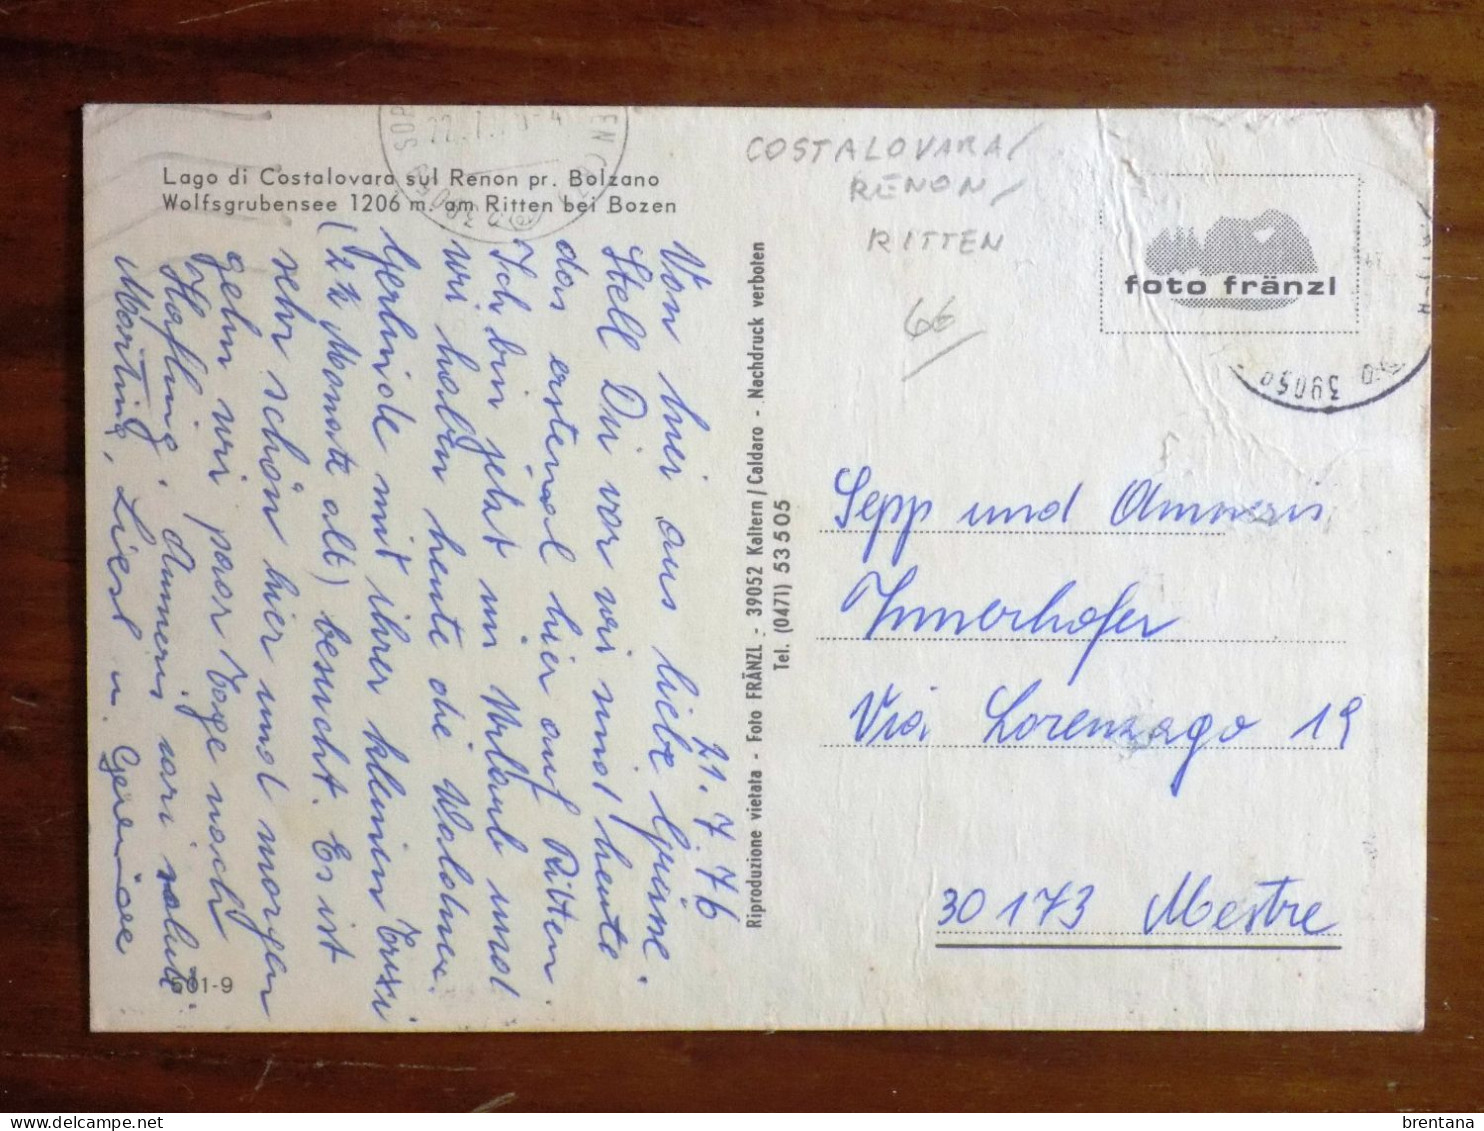 Lago di Costalovara sul Renon pr. Bolzano
Wolfsgrubensee 1206 m. am Ritten bei Bozen
COSTALOVARA/
RENON/
RITTEN
66
foto fränzl
39050
21. 7. 76
Von hier aus liebe Grüsse.
Stell Dir vor wir sind heute
das erstemal hier auf Ritten.
Ich bin jetzt im Urlaub und
wir haben heute die
Gerlinde mit ihrer kleinen
(2 ½ Monate alt) besucht. Es ist
sehr schön hier und morgen
gehn wir paar Tage nach
Hafling.
Martina, Liesl u.
601-9
Riproduzione vietata - Foto FRÄNZL - 39052 Kaltern/Caldaro - Nachdruck verboten
Tel. (0471) 53505
Sepp und Annneris
Innerhofer
Via Lorenzago 19
30173 Mestre
brentana